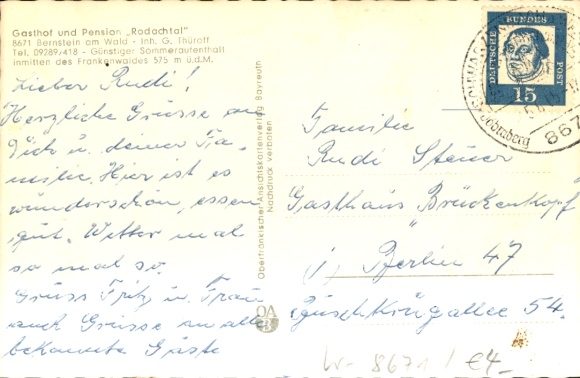 Gasthof und Pension „Rodachtal"
8671 Bernstein am Wald - Inh. G. Thüroff
Tel. 09289/418 - Günstiger Sommeraufenthalt
inmitten des Frankenwaldes 575 m ü.d.M.
Lieber Rudi!
Herzliche Grüsse an
Dich u. deiner Fa-
milie. Hier ist es
wunderschön, essen
gut. Wetter mal
so mal so.
Gruss Fritz u. Frau
auch Grüsse an alle
bekannte Gäste
Oberfränkischer Ansichtskartenverlag Bayreuth
Nachdruck verboten
OA
DEUTSCHE BUNDESPOST
15
867
Familie
Rudi Steuer
Gasthaus "Brückenkopf"
1, Berlin 47
Buschkrügallee 54.
8671 / €4-